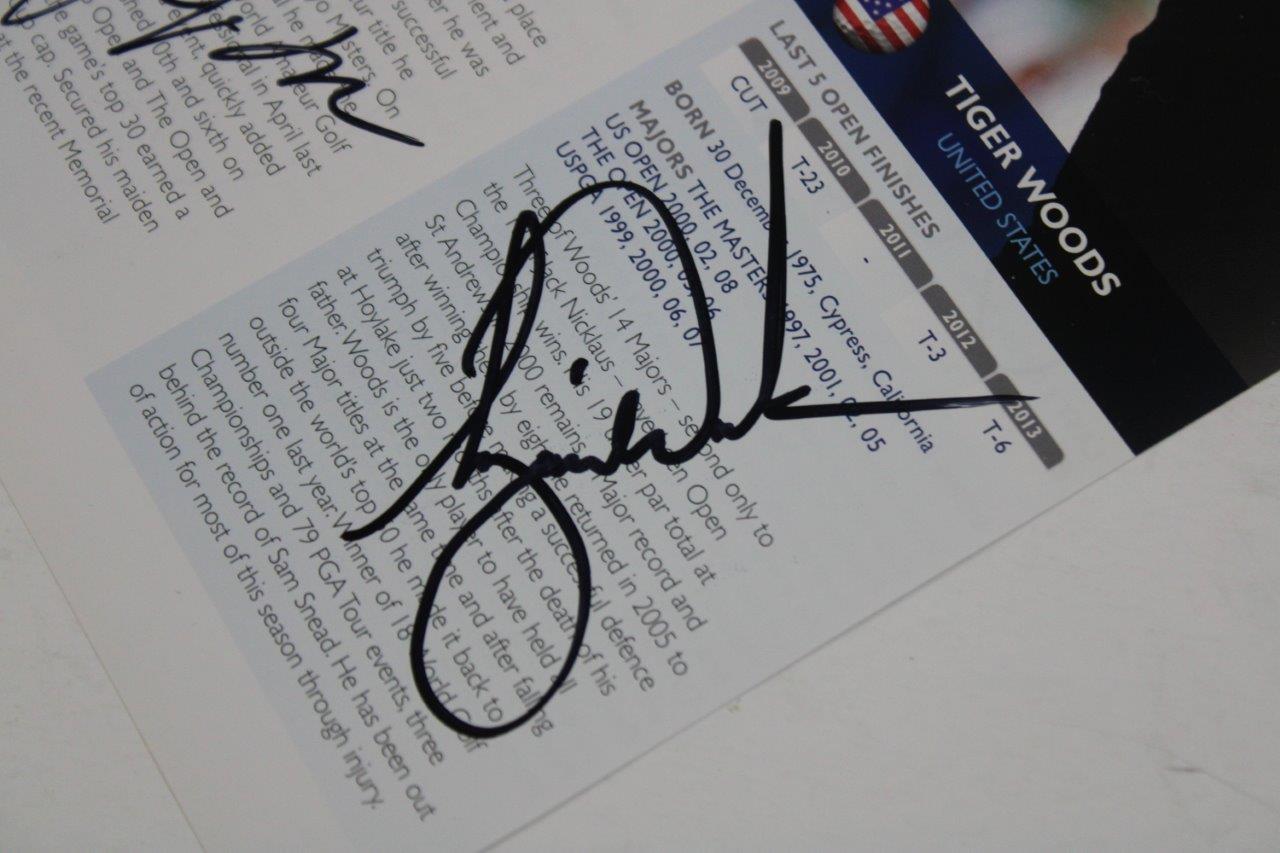 place
ient and
er he was
successful
ur title he
Masters. On
orld Amateur Golf
essional in April last
ent, quickly added
nished 10th and sixth on
Open and The Open and
the game's top 30 earned a
cap. Secured his maiden
t the recent Memorial
TIGER WOODS
UNITED STATES
LAST 5 OPEN FINISHES
2009 2010 2011 2012 2013
CUT T-23 - T-3 T-6
BORN 30 December 1975, Cypress, California
MAJORS THE MASTERS 1997, 2001, 02, 05
US OPEN 2000, 02, 08
THE OPEN 2000, 05, 06
USPGA 1999, 2000, 06, 07
Three of Woods' 14 Majors – second only to
the Jack Nicklaus – have been Open
Championship wins. His 19 under par total at
St Andrews in 2000 remains a Major record and
after winning there by eight he returned in 2005 to
triumph by five before making a successful defence
at Hoylake just two months after the death of his
father. Woods is the only player to have held all
four Major titles at the same time and after falling
outside the world's top 50 he made it back to
number one last year. Winner of 18 World Golf
Championships and 79 PGA Tour events, three
behind the record of Sam Snead. He has been out
of action for most of this season through injury.